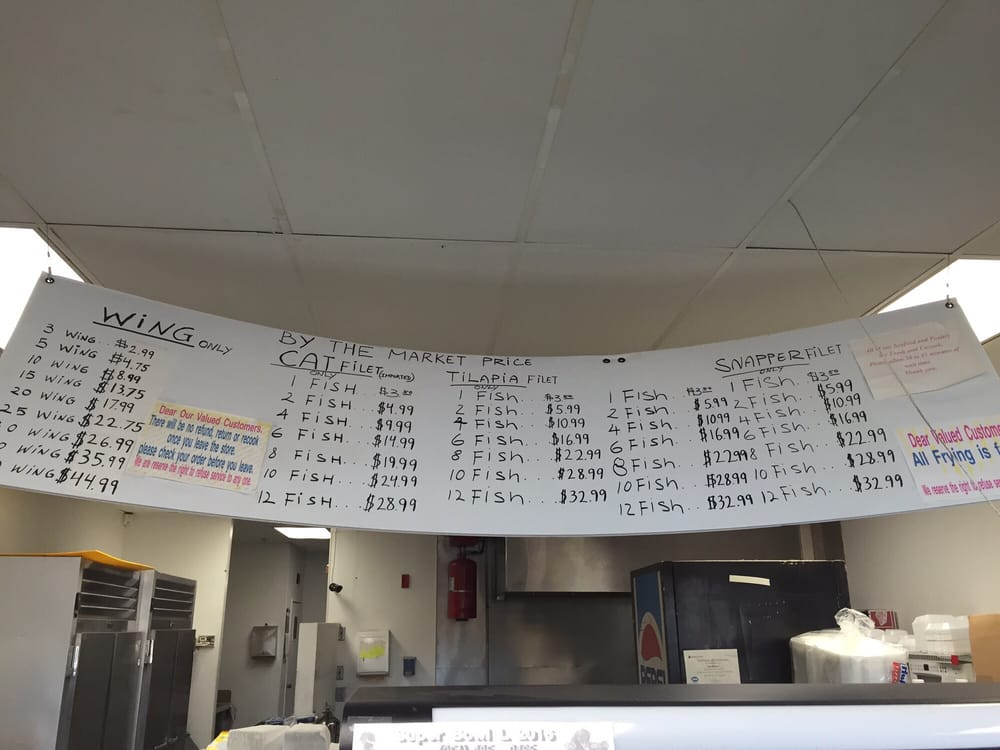 WiNG ONLY
3 WiNG.. $2.99
5 WiNG $4.75
10 WiNG $8.99
15 WiNG $13.75
20 WiNG $17.99
25 WiNG $22.75
0 WiNG $26.99
WiNG $35.99
WiNG $44.99
Dear Our Valued Customers.
There will be no refund, return or recook
once you leave the store.
please check your order before you leave.
We are reserve the right to refuse service to any one.
BY THE MARKET PRICE
CAT FiLET
ONLY
1 FiSH... $3.00
2 FiSH... $4.99
4 FiSH... $9.99
6 FiSH... $14.99
8 FiSH... $19.99
10 FiSH... $24.99
12 FiSH.... $28.99
TiLAPiA FiLET
ONLY
1 FiSh... $3.00
2 FiSh... $5.99
4 FiSh... $10.99
6 FiSh... $16.99
8 FiSh... $22.99
10 FiSh... $28.99
12 FiSh... $32.99
1 FiSh... $3.00
2 FiSh... $5.99
4 FiSh... $10.99
6 FiSh... $16.99
8 FiSh... $22.99
10 FiSh... $28.99
12 FiSh... $32.99
SNAPPER FiLET
ONLY
1 FiSh... $3.00
2 FiSh... $5.99
4 FiSh... $10.99
6 FiSh... $16.99
8 FiSh... $22.99
10 FiSh... $28.99
12 FiSh... $32.99
All of our Seafood and Poultry
Are Fresh and Uncook.
Please allow 10 to 15 minutes of
wait time.
Thank you.
Dear Valued Custome
All Frying is f
We reserve the right to refuse ser
PEPSI
Super Bowl L 2016